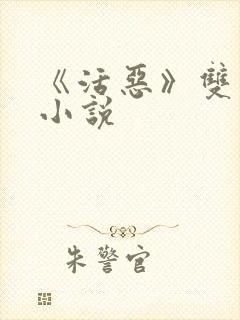 《活惡》雙
小說
朱警官